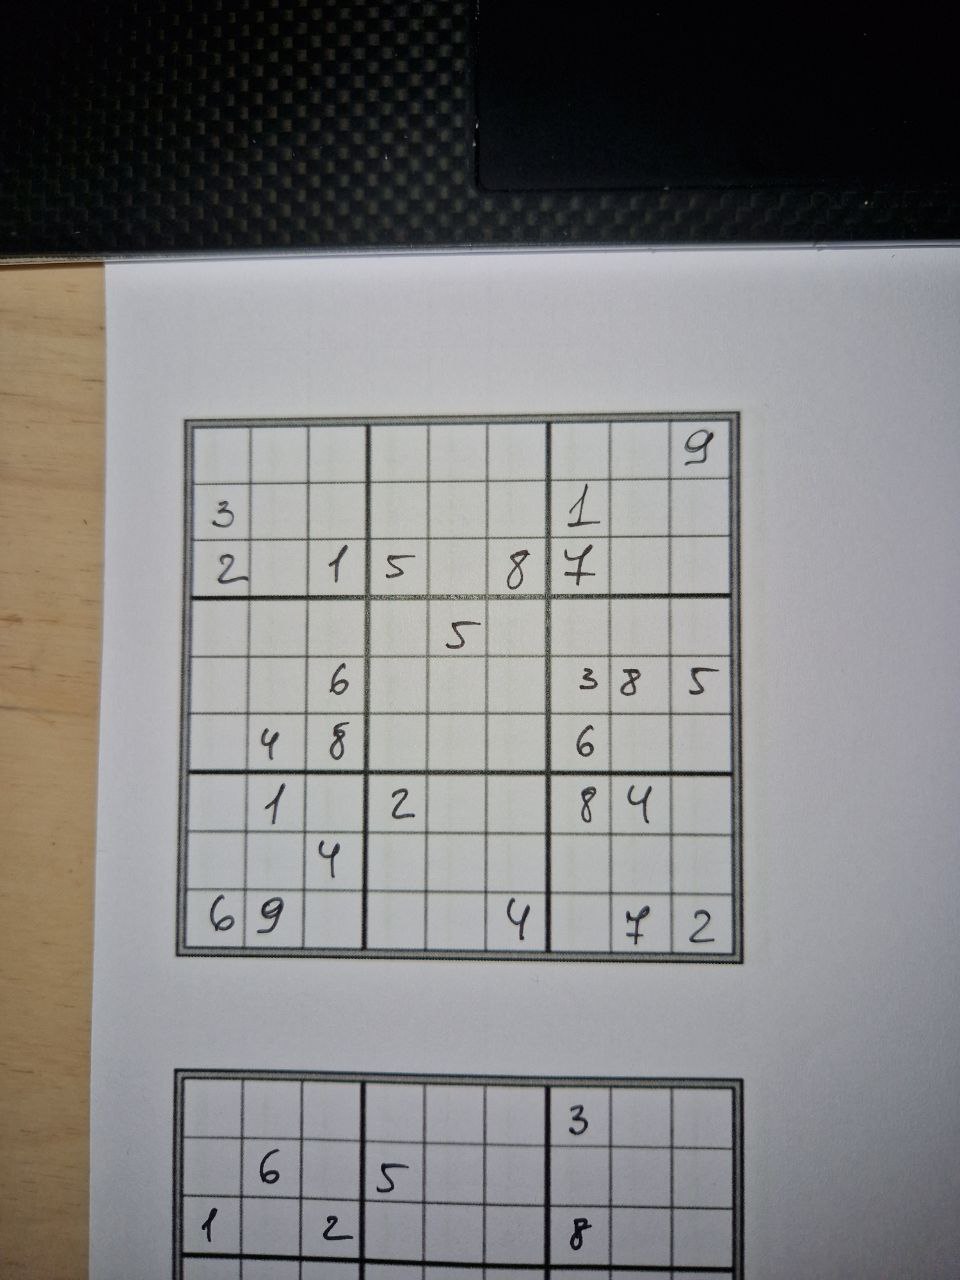 9
3 1
2 1 5 8 7
5
6 3 8 5
4 8 6
1 2 8 4
4
6 9 4 7 2
3
6 5
1 2 8